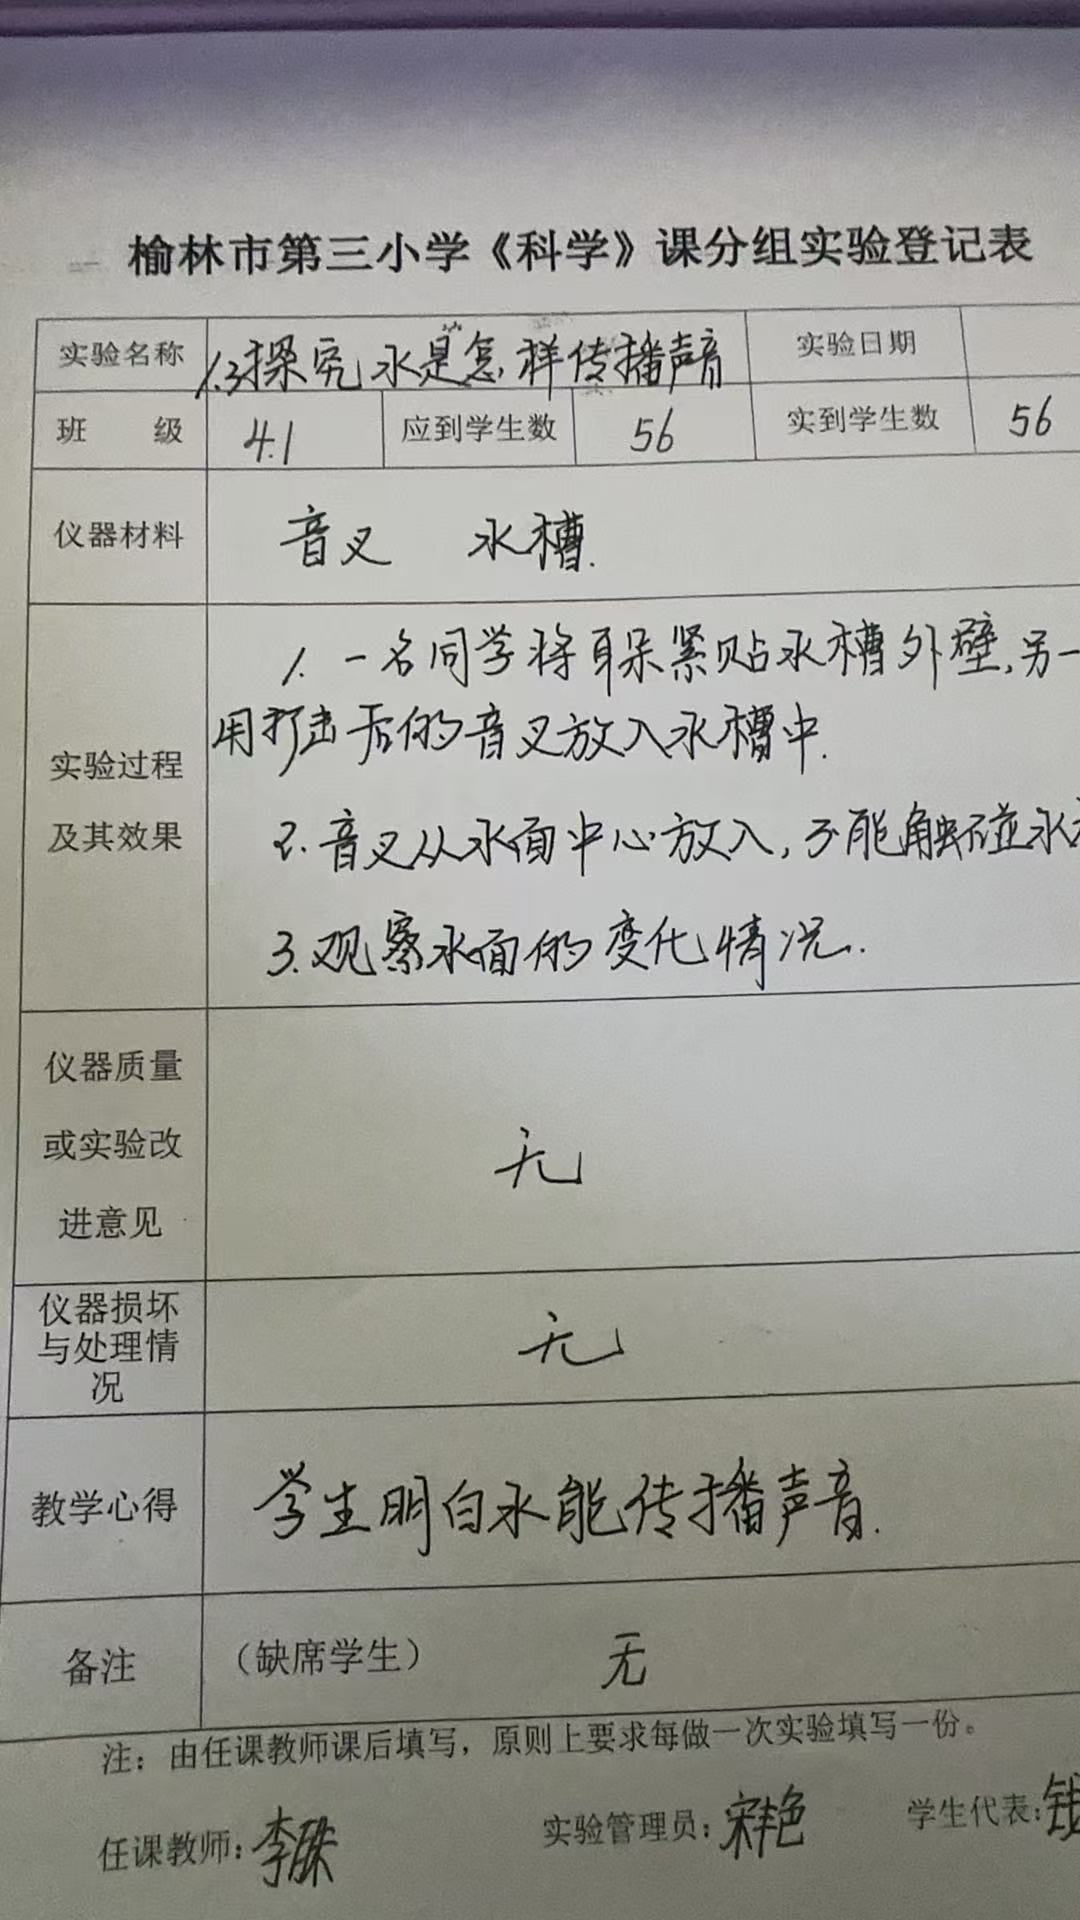 榆林市第三小学《科学》课分组实验登记表
实验名称 1.3探究水是怎样传播声音 实验日期
班 级 4.1 应到学生数 56 实到学生数 56
仪器材料 音叉 水槽.
1. 一名同学将耳朵紧贴水槽外壁,另一
用打击后的音叉放入水槽中.
实验过程
及其效果
2. 音叉从水面中心放入,不能触碰水
3.观察水面的变化情况.
仪器质量
或实验改
进意见
无
仪器损坏
与处理情
况
无
教学心得 学生明白水能传播声音.
备注 (缺席学生) 无
注:由任课教师课后填写,原则上要求每做一次实验填写一份。
任课教师:李 实验管理员:宋艳 学生代表:钱